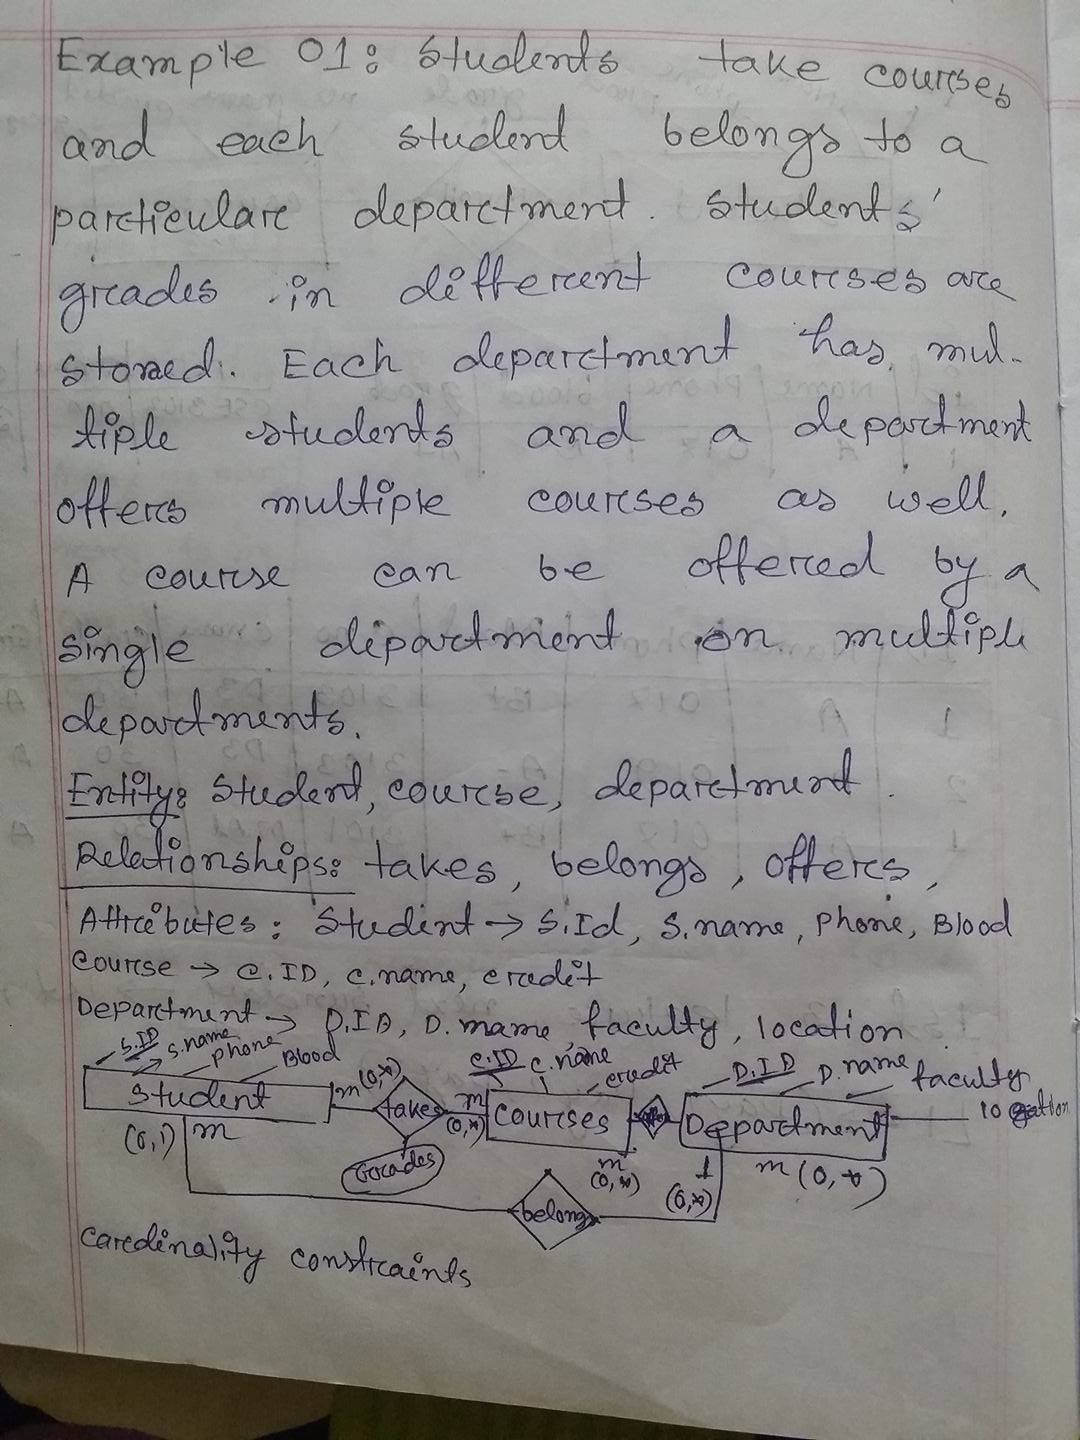 Example 01: Students take courses
and each student belongs to a
particular department. Students'
grades in different courses are
stored. Each department has mul-
tiple students and a department
offers multiple courses as well.
A course can be offered by a
single department or multiple
departments.
Entity: Student, course, department.
Relationships: takes, belongs, offers,
Attributes: Student → S.Id, S.name, Phone, Blood
Course → C.ID, C.name, credit
Department → D.ID, D.name, faculty, location
S.ID S.name Phone Blood
C.ID C.name credit
D.ID D.name faculty location
Student m(0,*) takes m (0,*) Courses Department
(0,1) m
Grades
m (0,*)
1 (0,*)
m (0,*)
belongs
Cardinality constraints